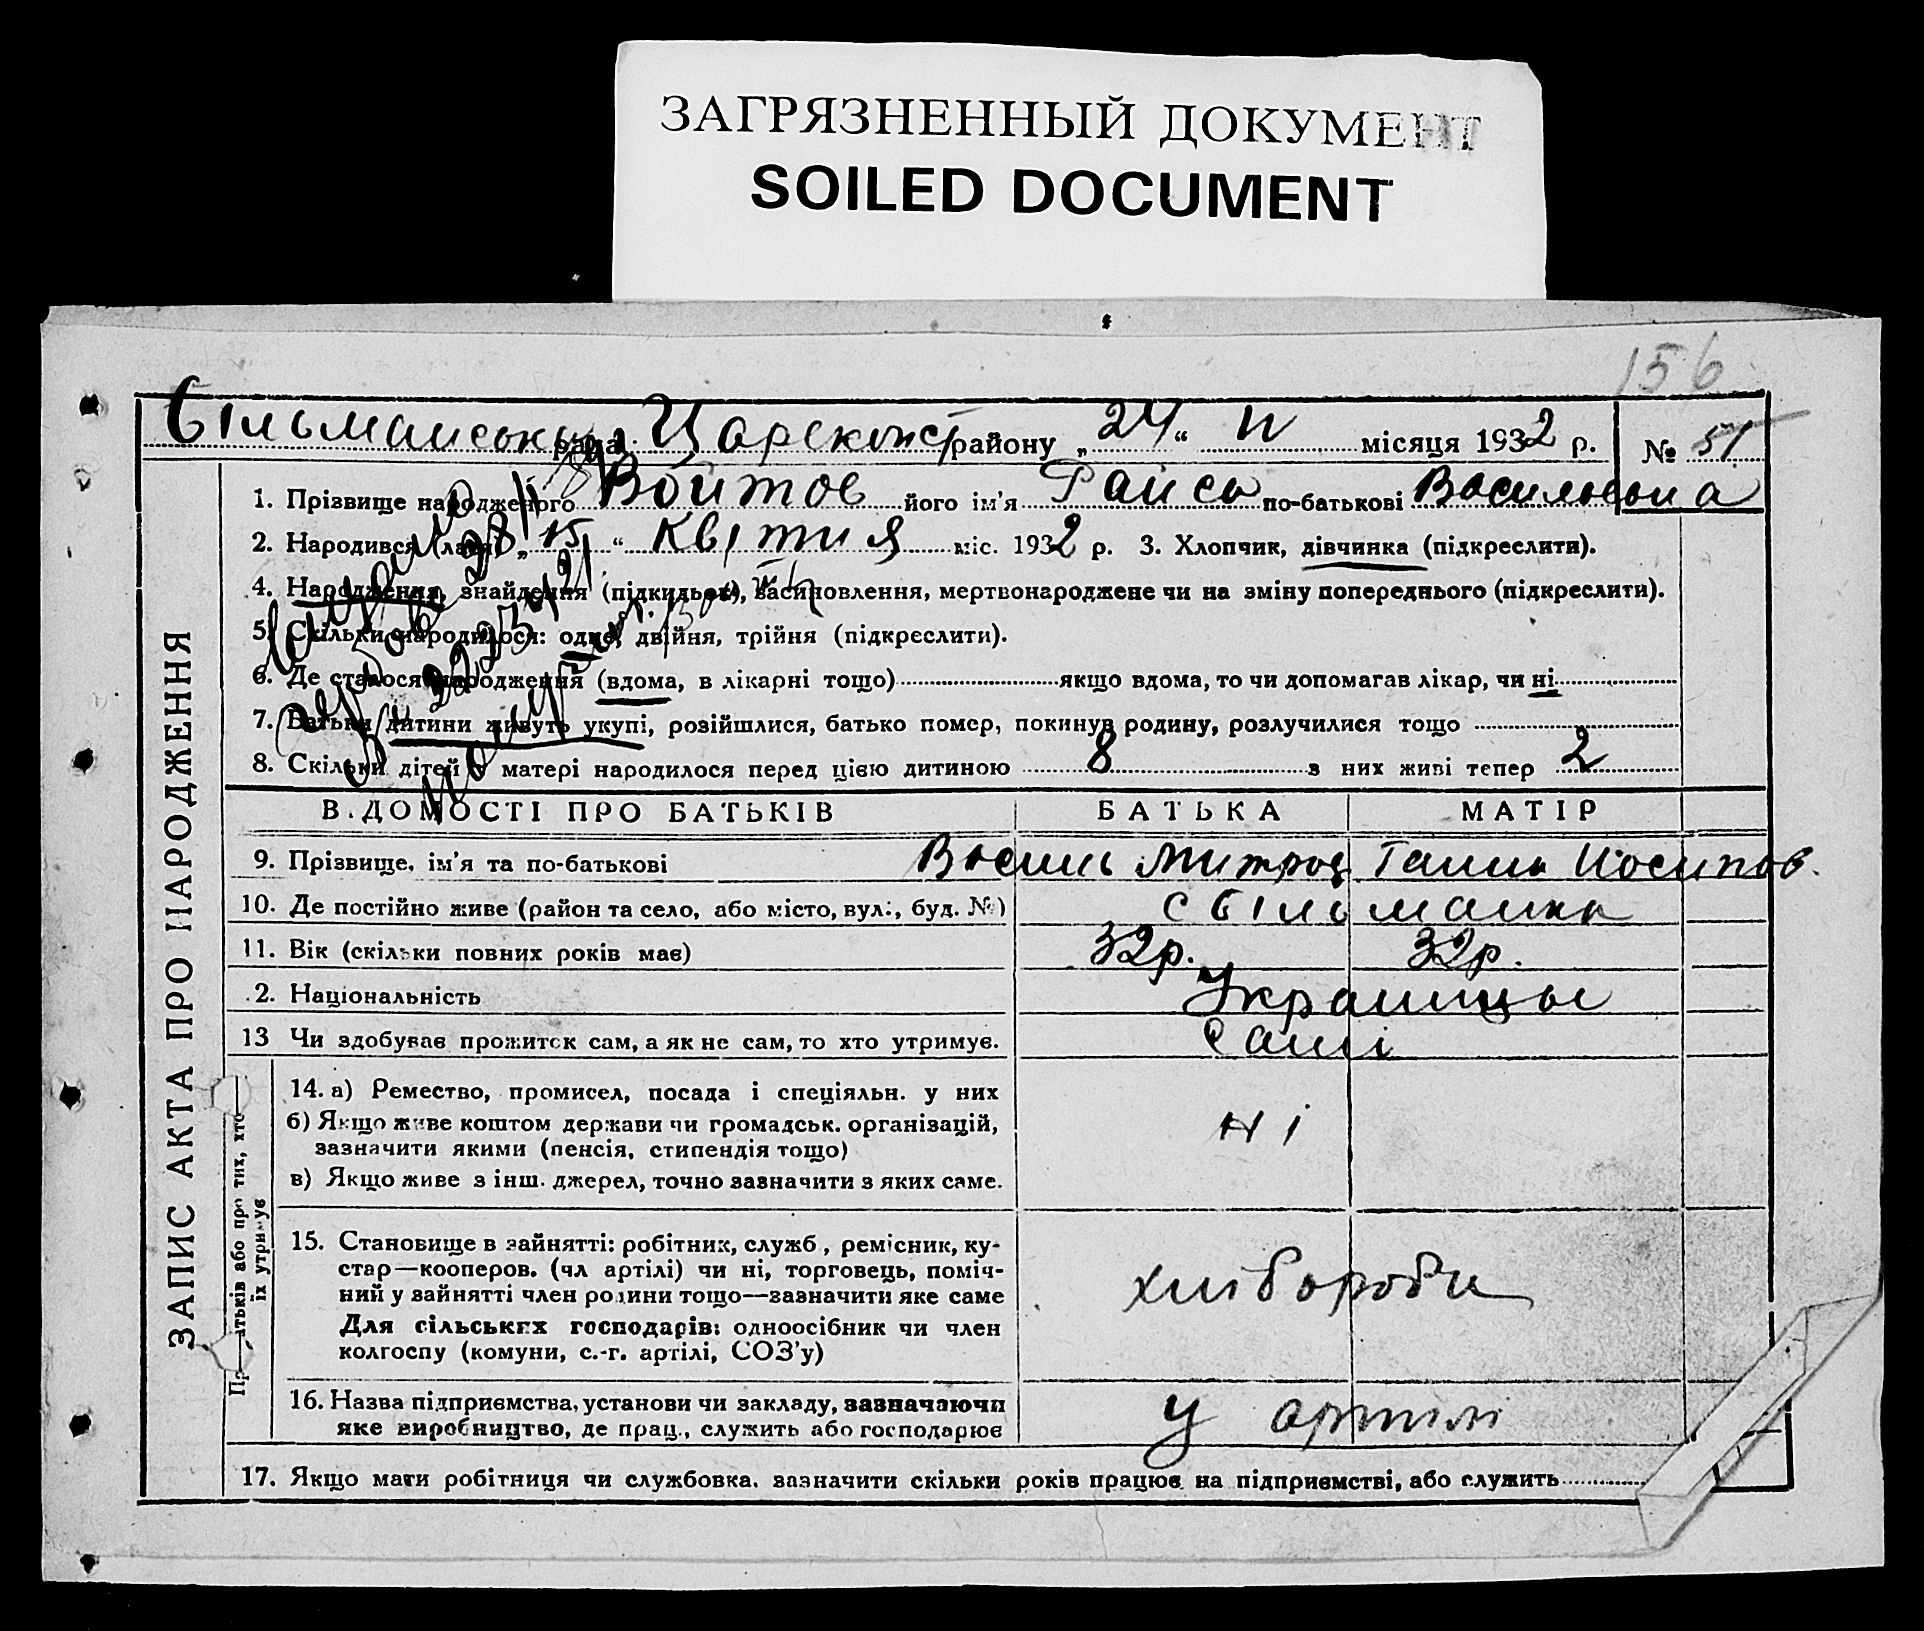 ЗАГРЯЗНЕННЫЙ ДОКУМЕНТ
SOILED DOCUMENT
156
рада району „24“ IV місяця 1932 р. № 51
1. Прізвище народженого Войтов його ім'я Раиса по-батькові Васильевна
2. Народився (лася) „15“ Квітня міс. 1932 р. 3. Хлопчик, дівчинка (підкреслити).
4. Народження, знайдення (підкидьок), засиновлення, мертвонароджене чи на зміну попереднього (підкреслити).
5. Скільки народилося: одне, двійня, трійня (підкреслити).
6. Де сталося народження (вдома, в лікарні тощо) якщо вдома, то чи допомагав лікар, чи ні
7. Батьки дитини живуть укупі, розійшлися, батько помер, покинув родину, розлучилися тощо
8. Скільки дітей у матері народилося перед цією дитиною 8 з них живі тепер 2
В.ДОМОСТІ ПРО БАТЬКІВ БАТЬКА МАТІР
9. Прізвище, ім'я та по-батькові Василь Митроф Ганна Иосипов.
10. Де постійно живе (район та село, або місто, вул., буд. №)
11. Вік (скільки повних років має) 32р. 32р.
.2. Національність Украинцы
13 Чи здобуває прожиток сам, а як не сам, то хто утримує. Самі
14. а) Ремество, промисел, посада і спеціяльн. у них
б) Якщо живе коштом держави чи громадськ. організацій,
зазначити якими (пенсія, стипендія тощо)
в) Якщо живе з інш. джерел, точно зазначити з яких саме.
ні
15. Становище в зайнятті: робітник, служб, ремісник, ку-
стар—кооперов. (чл артілі) чи ні, торговець, поміч-
ний у зайнятті член родини тощо—зазначити яке саме
Для сільських господарів: одноосібник чи член
колгоспу (комуни, с.-г. артілі, СОЗ'у)
хліборoби
16. Назва підприємства, установи чи закладу, зазначаючи
яке виробництво, де прац., служить або господарює
у артілі
17. Якщо мати робітниця чи службовка, зазначити скільки років працює на підприємстві, або служить
ЗАПИС АКТА ПРО НАРОДЖЕННЯ
атьків або про тих, хто
їх утримує